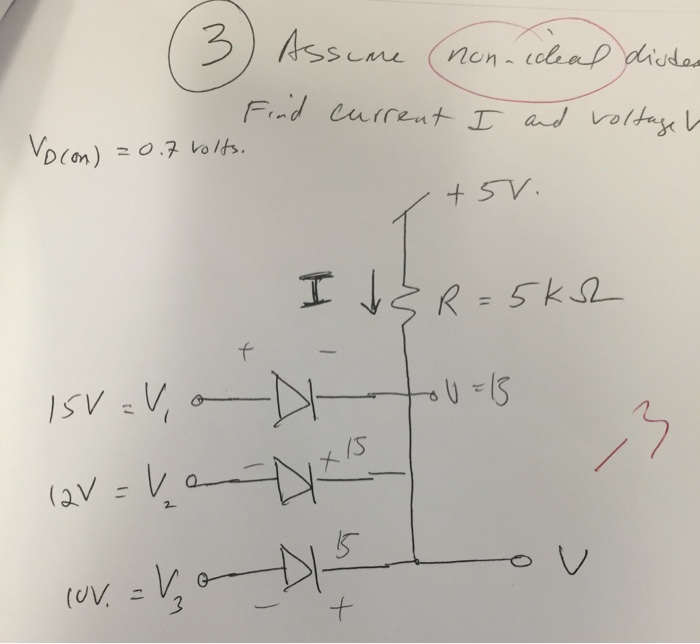 3 Assume non-ideal diodes
Find current I and voltage V
VD(on) = 0.7 volts.
+ 5V.
I ↓ R = 5kΩ
+ -
15V = V1 V = 15
12V = V2 - + 15
10V. = V3 - 15 +
V
-3